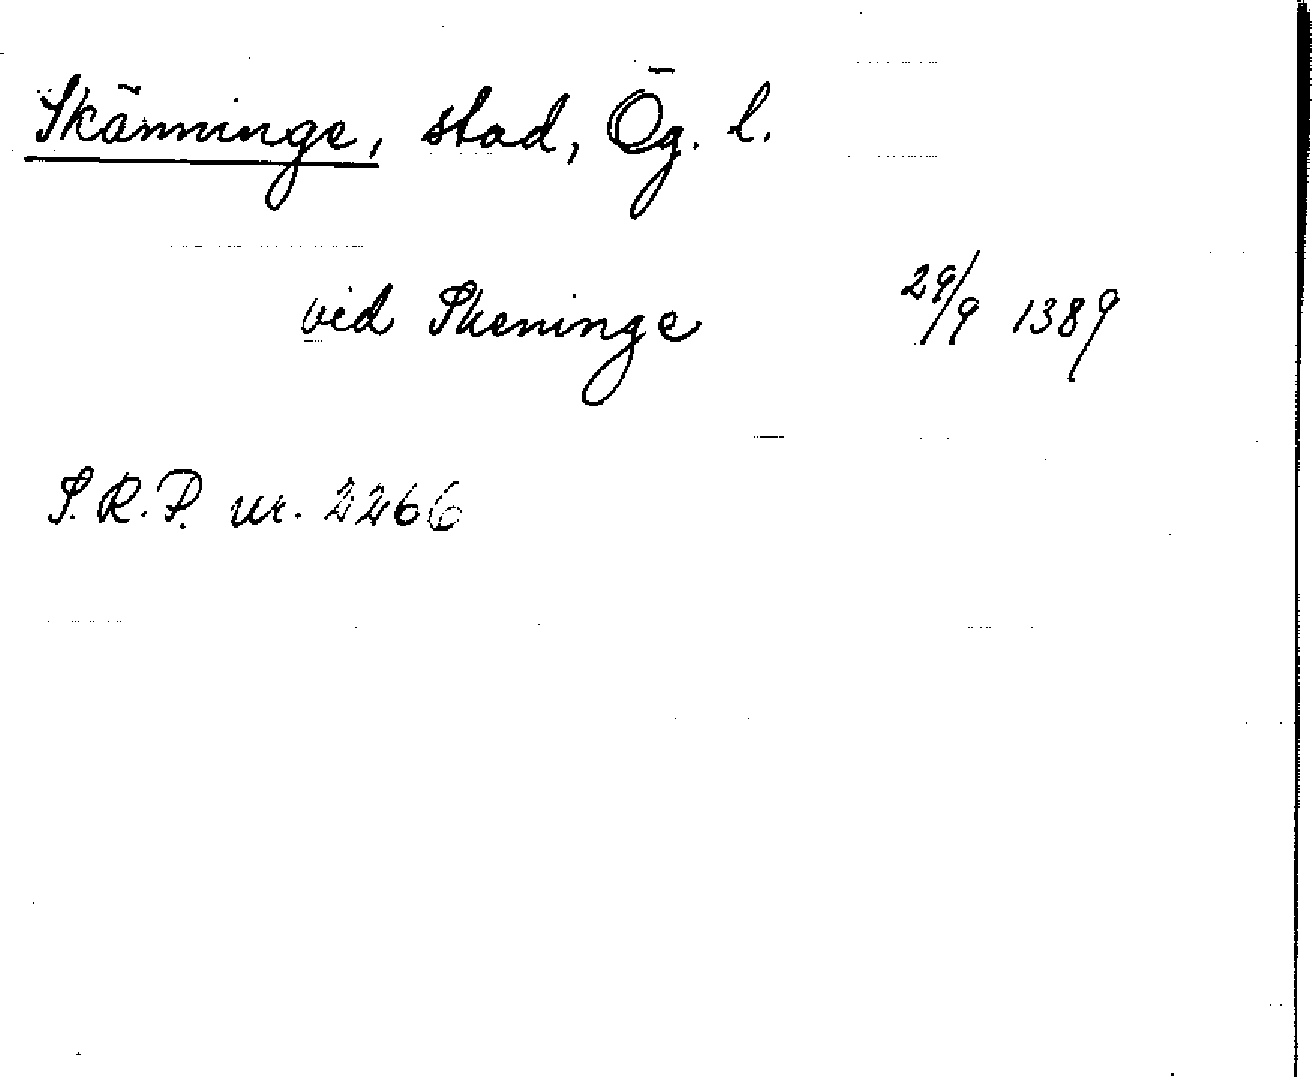 Skänninge, stad, Ög. l.
vid Skeninge 29/9 1389
S.R.P. nr. 2266